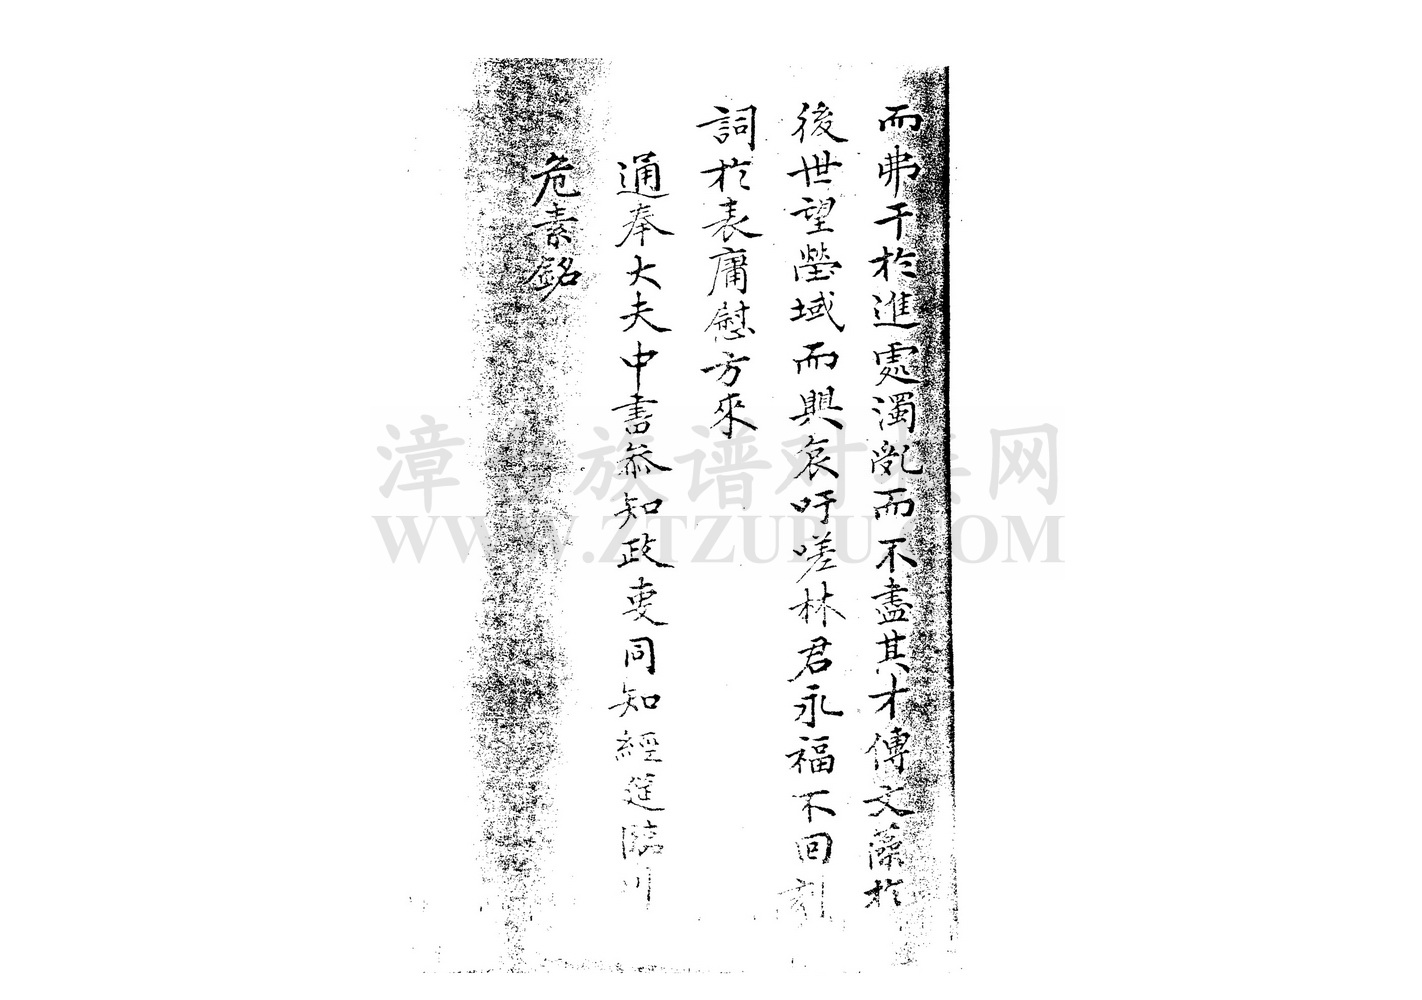 而弗干於進處濁亂而不盡其才傳文藻於
後世望塋域而興哀吁嗟林君永福不回刻
詞於表庸慰方來
通奉大夫中書叅知政叓同知經筵臨川
危素銘
漳 族谱对接网
WWW.ZTZUPU.COM